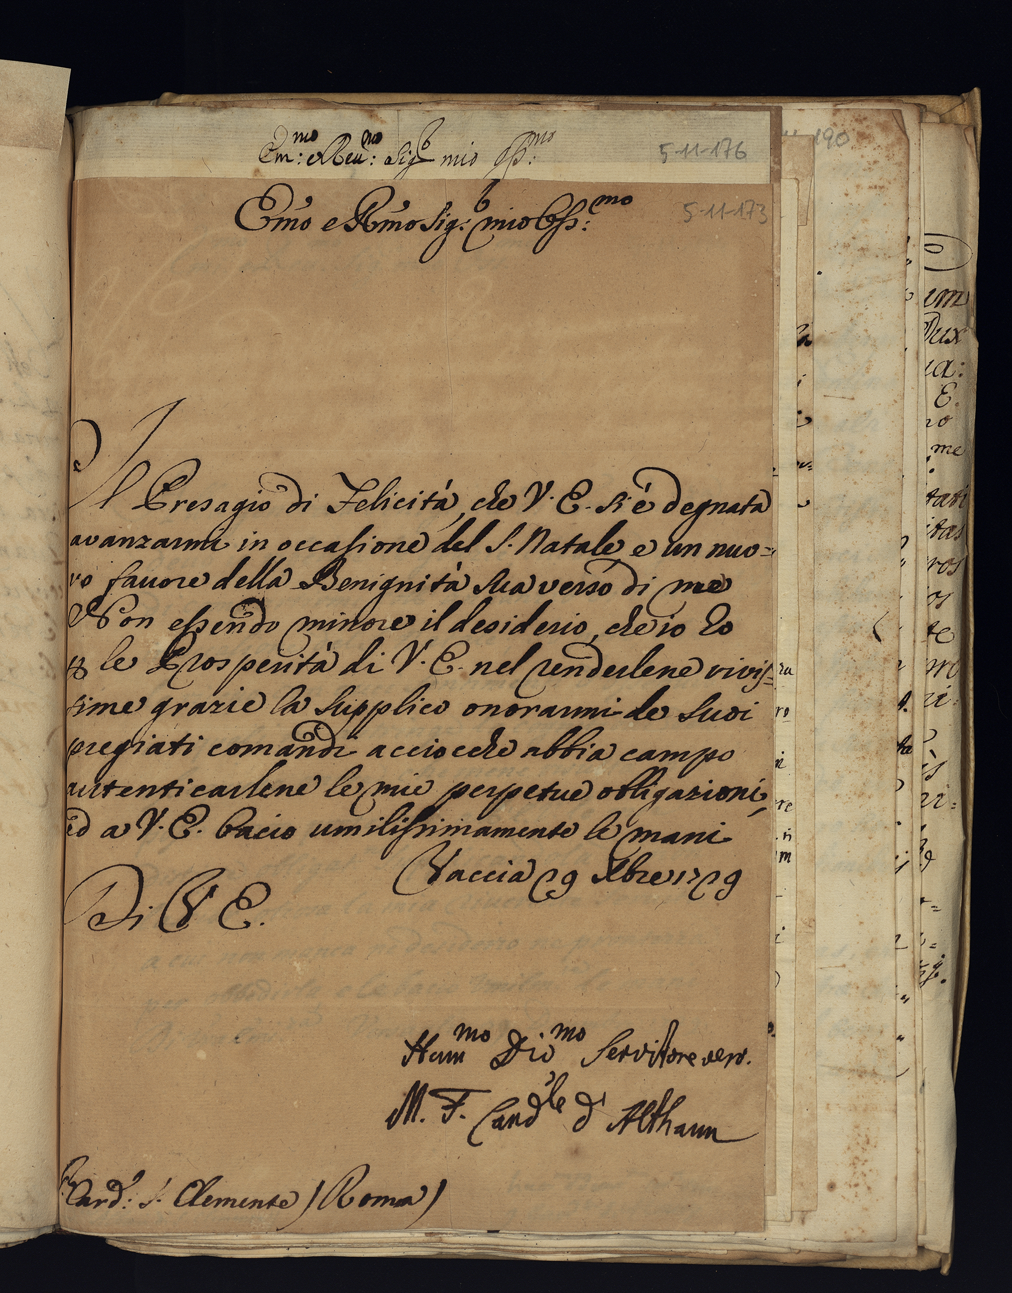 Em:mo e Reu:mo Sigr mio Oss:mo
5-11-176
190
Emo e Rmo Sig:r mio Oss:mo
5-11-173
Il Presagio di Felicità, che V. E. si è degnata
avanzarmi in occasione del S. Natale e un nuo=
vo favore della Benignità sua verso di me
Non essendo minore il desiderio, che io ho
p le Prosperità di V. E. nel renderlene vivis=
sime grazie la supplico onorarmi de suoi
pregiati comandi acciocche abbia campo
autenticarlene le mie perpetue obligazioni,
ed a V. E. bacio umilissimamente le mani
Vaccia 29 Xbre 1729
Di V E.
Hummo Diomo Servitore vero.
M. F. Cardle d' Althann
Card: S. Clemente (Roma)